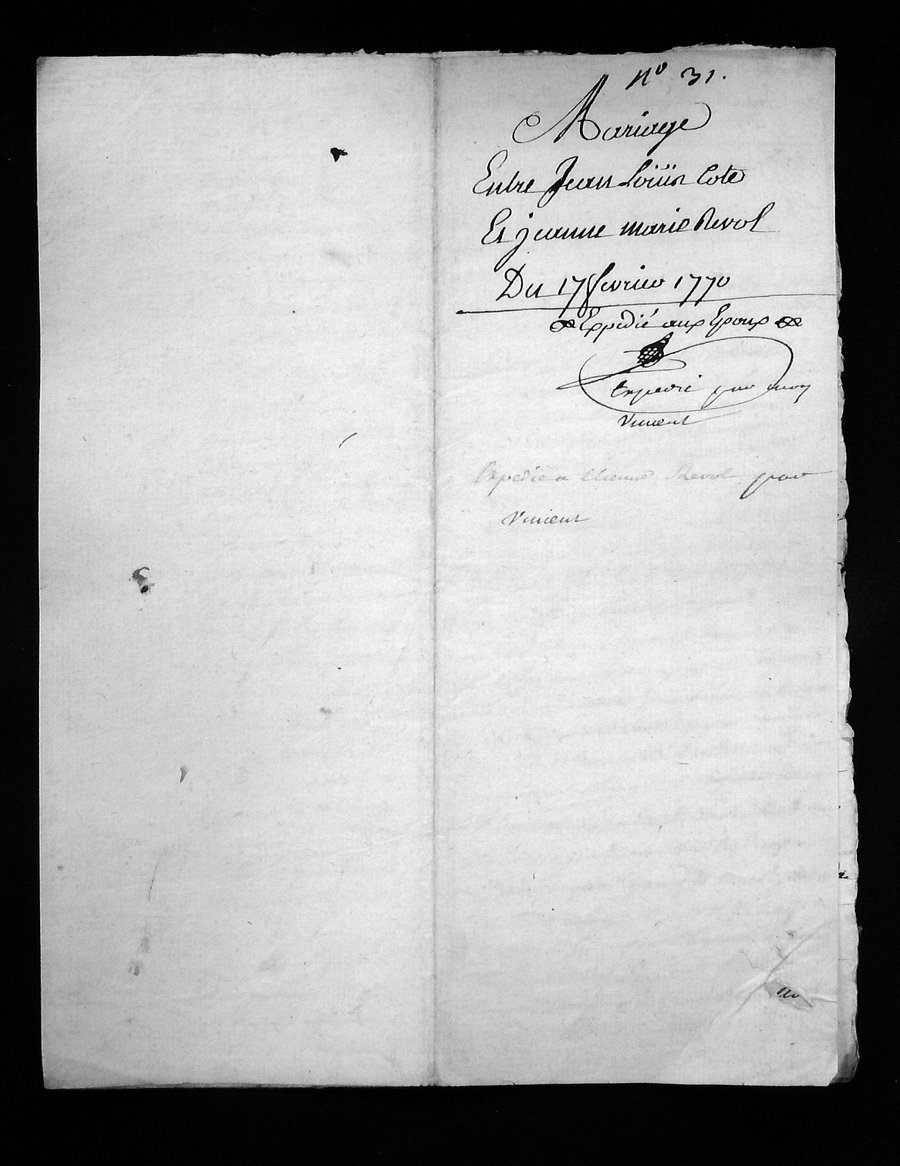 no 31.
Mariage
Entre Jean Loüis Cote
Et jeanne marie Revol
Du 17 fevrier 1770
Expedié aux Epoux
Expedié par moy
Vincent
Expedié a Etienne Revol par
Vincent